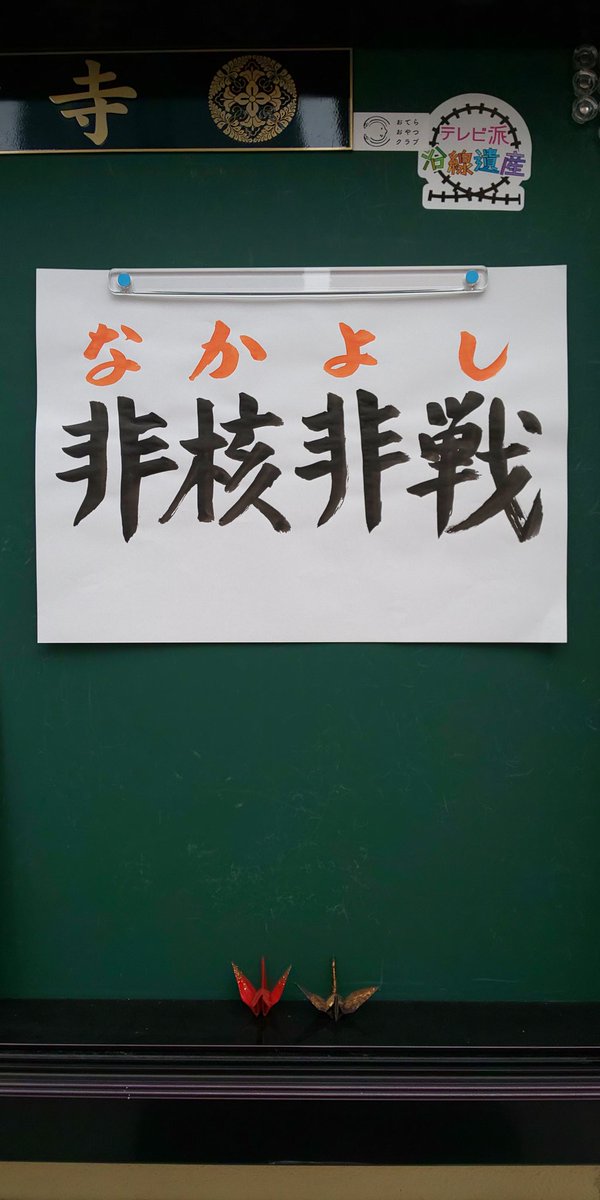 寺
おてら
おやつ
クラブ
テレビ派
沿線遺産
なかよし
非核非戦